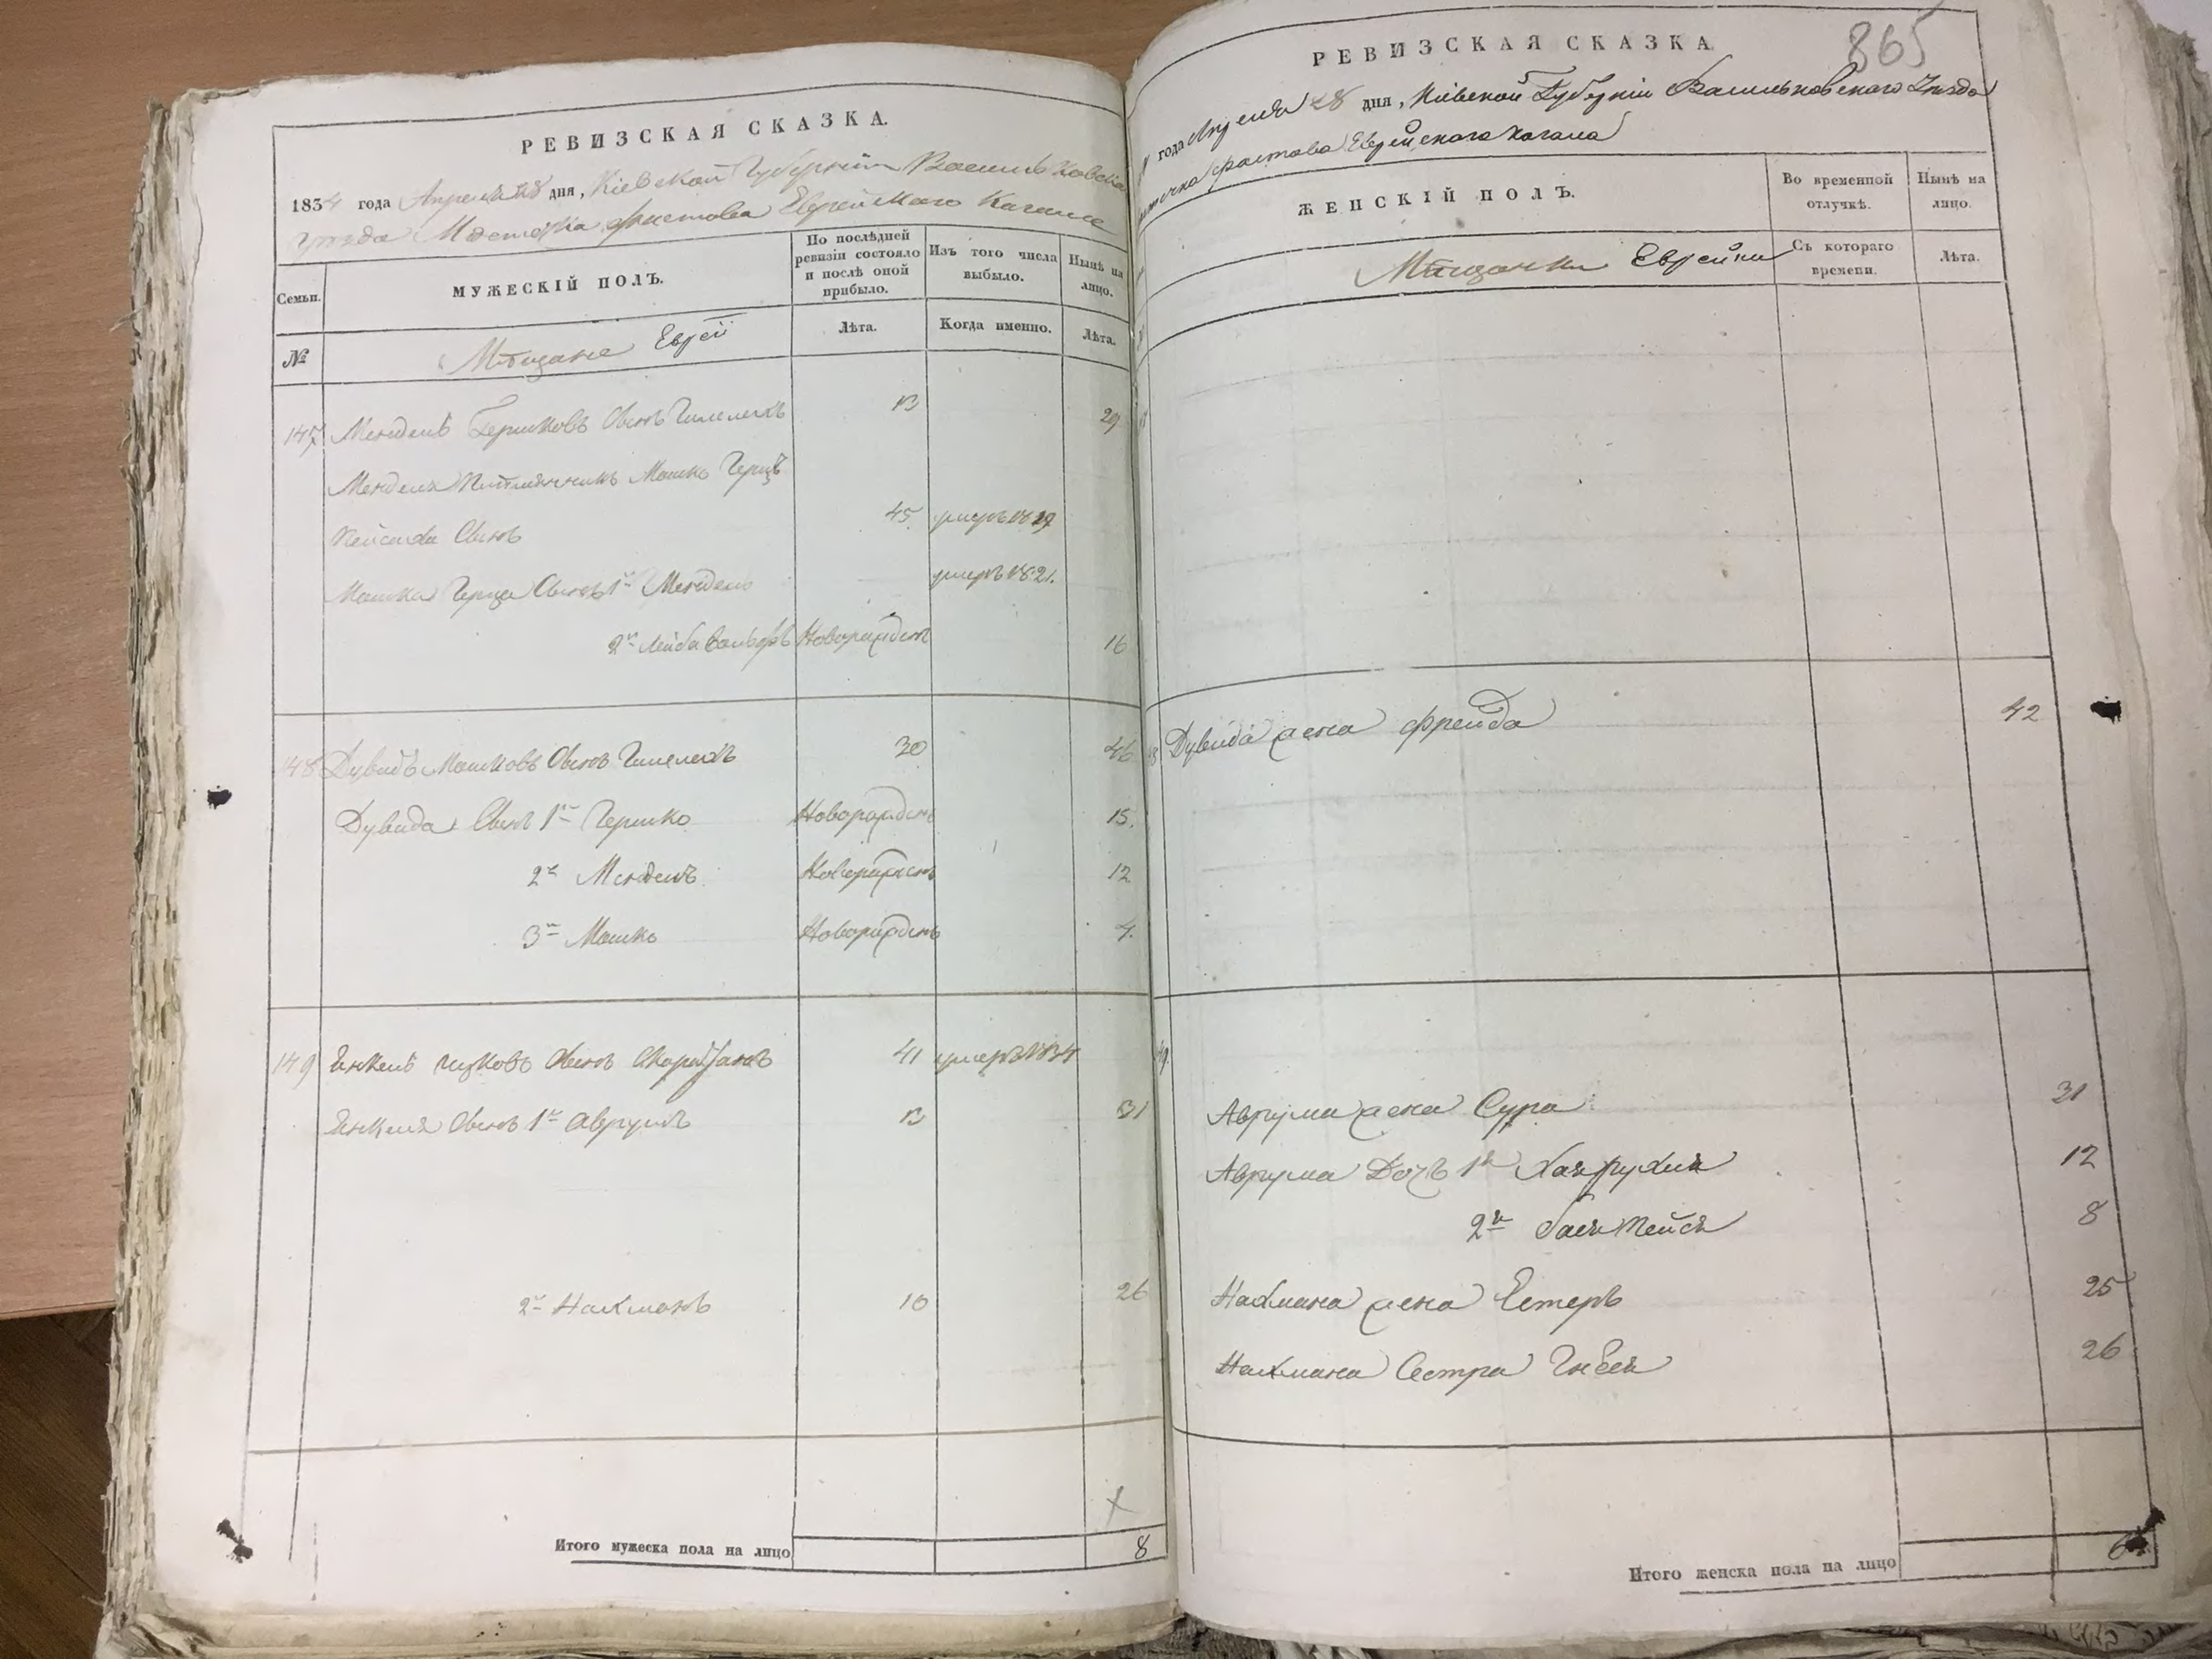 РЕВИЗСКАЯ СКАЗКА.
1834 года Апреля 28 дня, Кіевской Губерніи Васильковска
уезда Местечка Фастова Еврейскаго Кагала
Семьи.
МУЖЕСКІЙ ПОЛЪ.
По послѣдней ревизіи состояло и послѣ оной прибыло.
Изъ того числа выбыло.
Нынѣ на лицо.
№
Мѣщане Евреи
Лѣта.
Когда именно.
Лѣта.
147 Мендель Гершковъ Сынъ 13 29
Менделя Племянникъ Мошко Герцъ
Сынъ 45 умеръ 1829
Мошка Герца Сынъ 1й Мендель умеръ 1821.
2й Лейба Вольфъ Новорожденъ 16
148 Дувидъ Мошковъ Сынъ 30 46
Дувида Сынъ 1й Гершко Новорожденъ 15.
2й Мендель Новорожденъ 12
3й Мошко Новорожденъ 4.
149 Янкель Ицковъ Сынъ 41 умеръ 1834
Янкеля Сынъ 1й Аврумъ 13 31
2й Нахманъ 10 26
Итого мужеска пола на лицо 8
865
РЕВИЗСКАЯ СКАЗКА
года Апреля 28 дня, Кіевской Губерніи Васильковскаго Уезда
Фастова Еврейскаго Кагала
ЖЕНСКІЙ ПОЛЪ.
Во временной отлучкѣ.
Нынѣ на лицо.
Мѣщанки Еврейки
Съ котораго времени.
Лѣта.
Дувида жена Фрейда 42
49.
Аврума жена Сура 31
Аврума Дочь 1я Хаярухля 12
2я Бася 8
Нахмана жена Естеръ 25
Нахмана Сестра 26
Итого женска пола на лицо 6